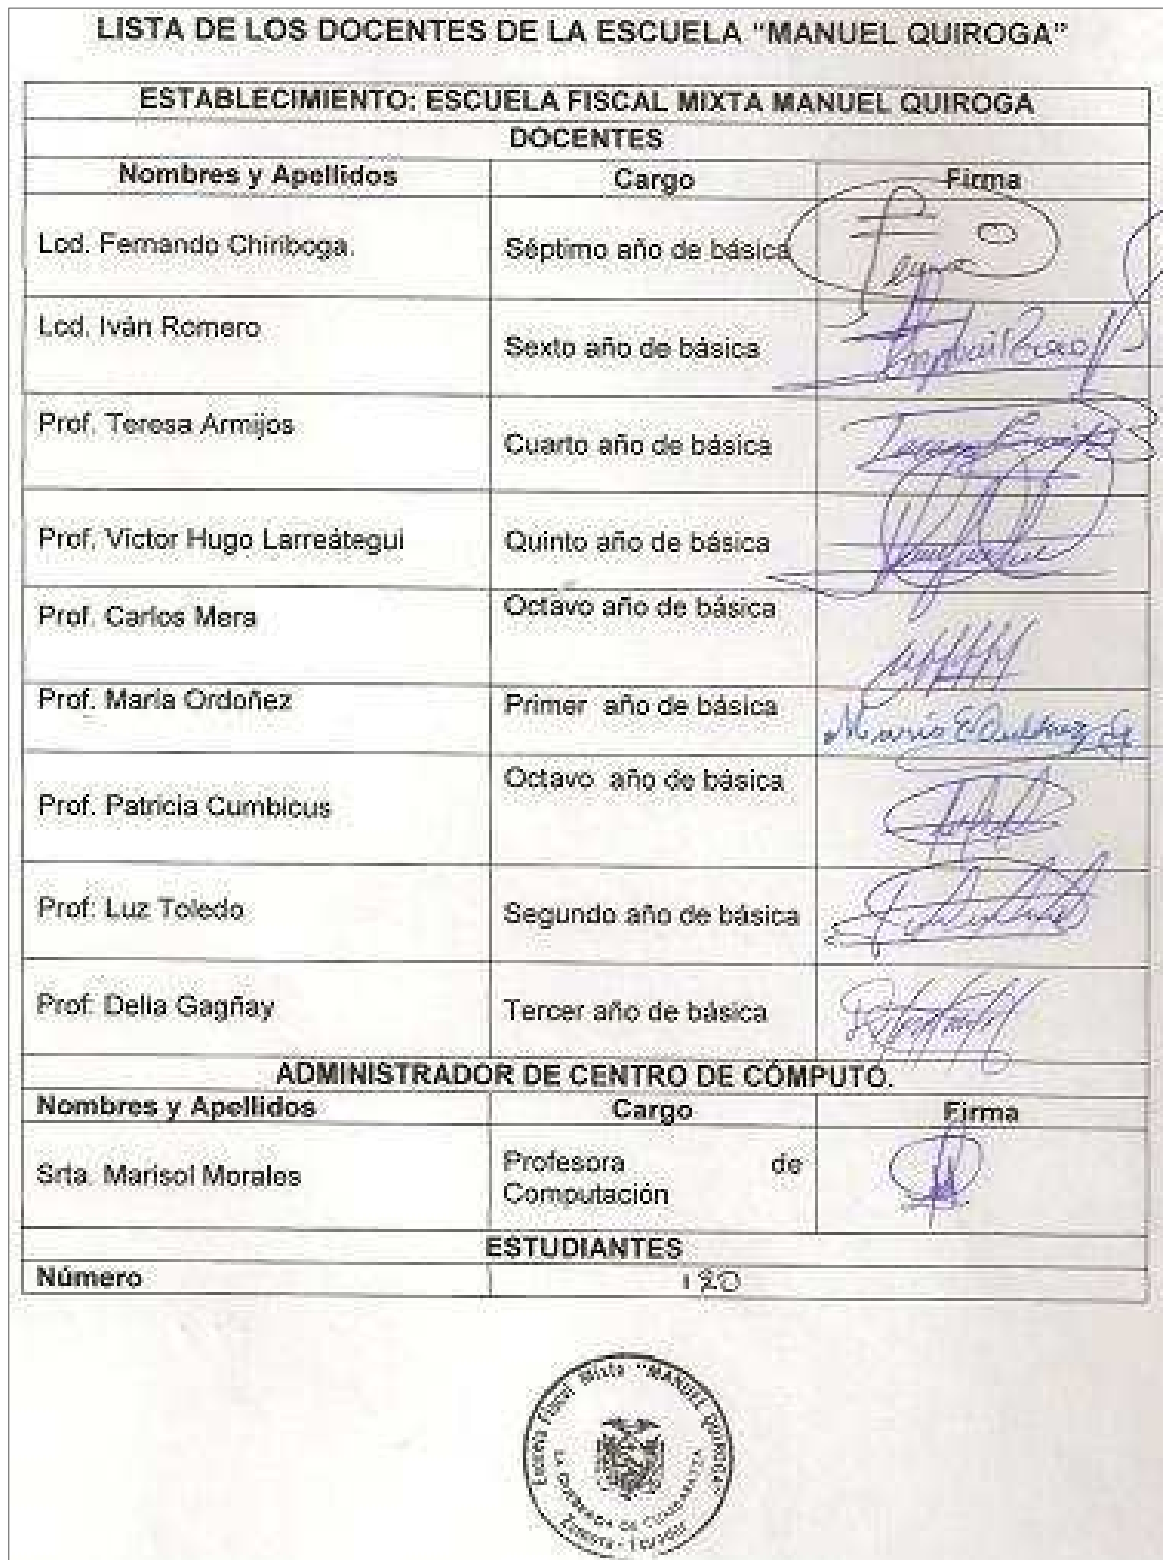 LISTA DE LOS DOCENTES DE LA ESCUELA “MANUEL QUIROGA”
ESTABLECIMIENTO: ESCUELA FISCAL MIXTA MANUEL QUIROGA
DOCENTES
Nombres y Apellidos Cargo Firma
Lcd. Fernando Chiriboga. Séptimo año de básica
Lcd. Iván Romero Sexto año de básica
Prof. Teresa Armijos Cuarto año de básica
Prof. Víctor Hugo Larreátegui Quinto año de básica
Prof. Carlos Mera Octavo año de básica
Prof. María Ordoñez Primer año de básica
Prof. Patricia Cumbicus Octavo año de básica
Prof. Luz Toledo Segundo año de básica
Prof. Delia Gagñay Tercer año de básica
ADMINISTRADOR DE CENTRO DE CÓMPUTO.
Nombres y Apellidos Cargo Firma
Srta. Marisol Morales Profesora de
Computación
ESTUDIANTES
Número 120
Escuela Fiscal Mixta "MANUEL QUIROGA"
LA QUEBRADA DE CUMBARATZA